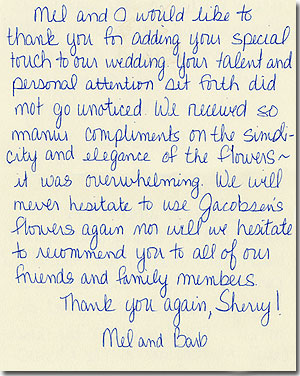 Mel and I would like to
thank you for adding your special
touch to our wedding. Your talent and
personal attention set forth did
not go unnoticed. We received so
many compliments on the simpli-
city and elegance of the flowers~
it was overwhelming. We will
never hesitate to use Jacobsen's
flowers again nor will we hesitate
to recommend you to all of our
friends and family members.
Thank you again, Sherry!
Mel and Barb